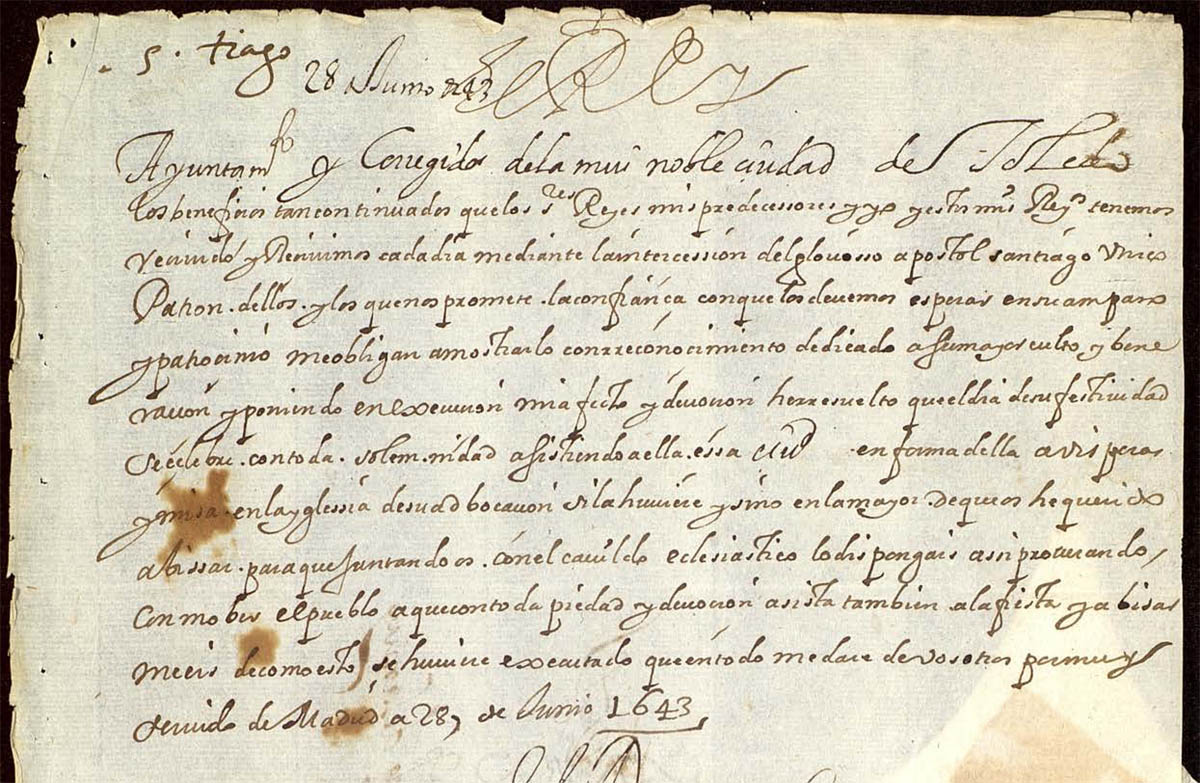 S. tiago
28 Junio 643 el Rey
Ayuntamto y Corregidor dela mui noble ciudad de Toledo
los beneficios tan continuados quelos sres Reyes mis predecessores y yo y estos mis Reynos tenemos
recivido y Recivimos cadadia mediante laintercession del gloriosso apostol santiago Unico
Patron. dellos. y los quenos promete. la confiança conque los devemos esperar ensu amparo
y patrocinio meobligan amostrarlo conrreconocimiento dedicado a sumayor culto y bene
racion y poniendo en execucion mi afecto y devocion herresuelto queeldia desu festividad
se celebre. contoda. solem.nidad asistiendo aella. essa ciud en forma della a visperas
y misa. enla yglessia desu adbocacion sila huviere y sino enla mayor. De que os he querido
abissar. para que Juntandoos. conel cavildo eclesiastico lo dispongais asi procurando,
conmober el pueblo aque contoda piedad y devocion asista tambien ala fiesta y abisar
meeis de como esto se huviere executado que entodo me dare de vosotros por muy
servido de Madrid a 28, de Junio 1643,